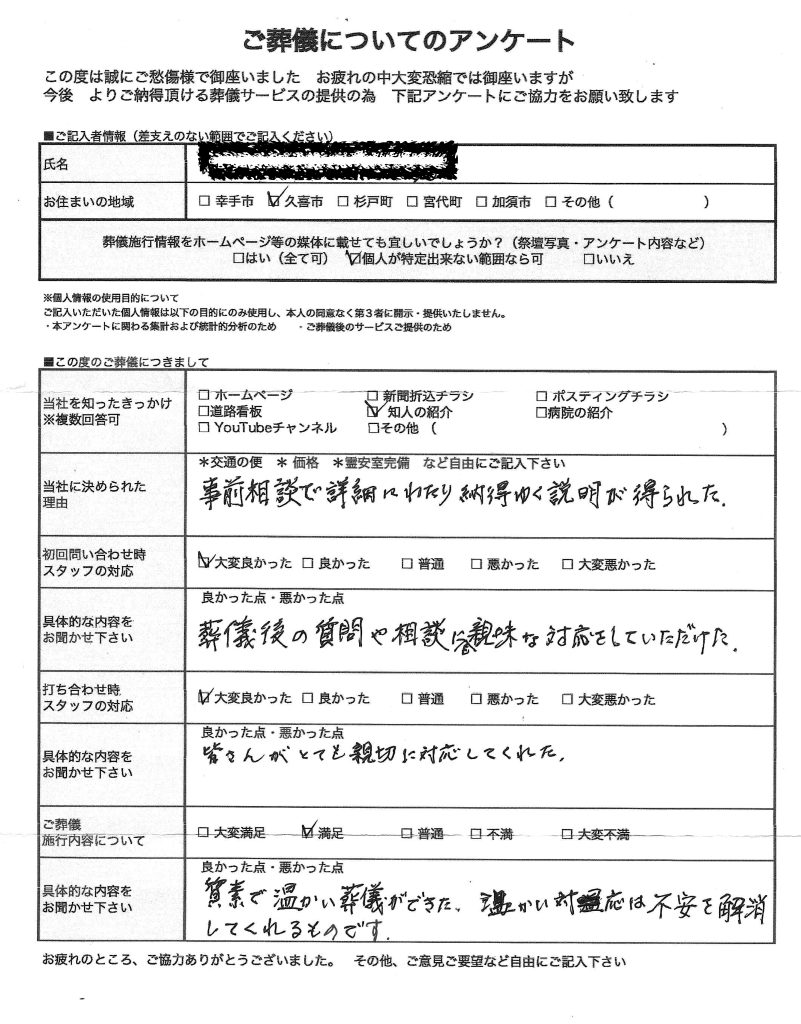 ご葬儀についてのアンケート
この度は誠にご愁傷様で御座いました　お疲れの中大変恐縮では御座いますが
今後　よりご納得頂ける葬儀サービスの提供の為　下記アンケートにご協力をお願い致します
■ご記入者情報（差支えのない範囲でご記入ください）
氏名
お住まいの地域 □ 幸手市 ☑ 久喜市 □ 杉戸町 □ 宮代町 □ 加須市 □ その他（　　　　　　）
葬儀施行情報をホームページ等の媒体に載せても宜しいでしょうか？（祭壇写真・アンケート内容など）
□はい（全て可） ☑個人が特定出来ない範囲なら可 □いいえ
※個人情報の使用目的について
ご記入いただいた個人情報は以下の目的にのみ使用し、本人の同意なく第３者に開示・提供いたしません。
・本アンケートに関わる集計および統計的分析のため　・ご葬儀後のサービスご提供のため
■この度のご葬儀につきまして
当社を知ったきっかけ
※複数回答可
□ ホームページ □ 新聞折込チラシ □ ポスティングチラシ
□道路看板 ☑ 知人の紹介 □病院の紹介
□ YouTubeチャンネル □その他（　　　　　　）
当社に決められた
理由
＊交通の便　＊ 価格　＊霊安室完備　など自由にご記入下さい
事前相談で詳細にわたり納得ゆく説明が得られた.
初回問い合わせ時
スタッフの対応
☑ 大変良かった □ 良かった □ 普通 □ 悪かった □ 大変悪かった
具体的な内容を
お聞かせ下さい
良かった点・悪かった点
葬儀後の質問や相談に親味な対応をしていただけた.
打ち合わせ時
スタッフの対応
☑ 大変良かった □ 良かった □ 普通 □ 悪かった □ 大変悪かった
具体的な内容を
お聞かせ下さい
良かった点・悪かった点
皆さんがとても親切に対応してくれた.
ご葬儀
施行内容について
□ 大変満足 ☑ 満足 □ 普通 □ 不満 □ 大変不満
具体的な内容を
お聞かせ下さい
良かった点・悪かった点
質素で温かい葬儀ができた、温かい対応は不安を解消
してくれるものです.
お疲れのところ、ご協力ありがとうございました。　その他、ご意見ご要望など自由にご記入下さい